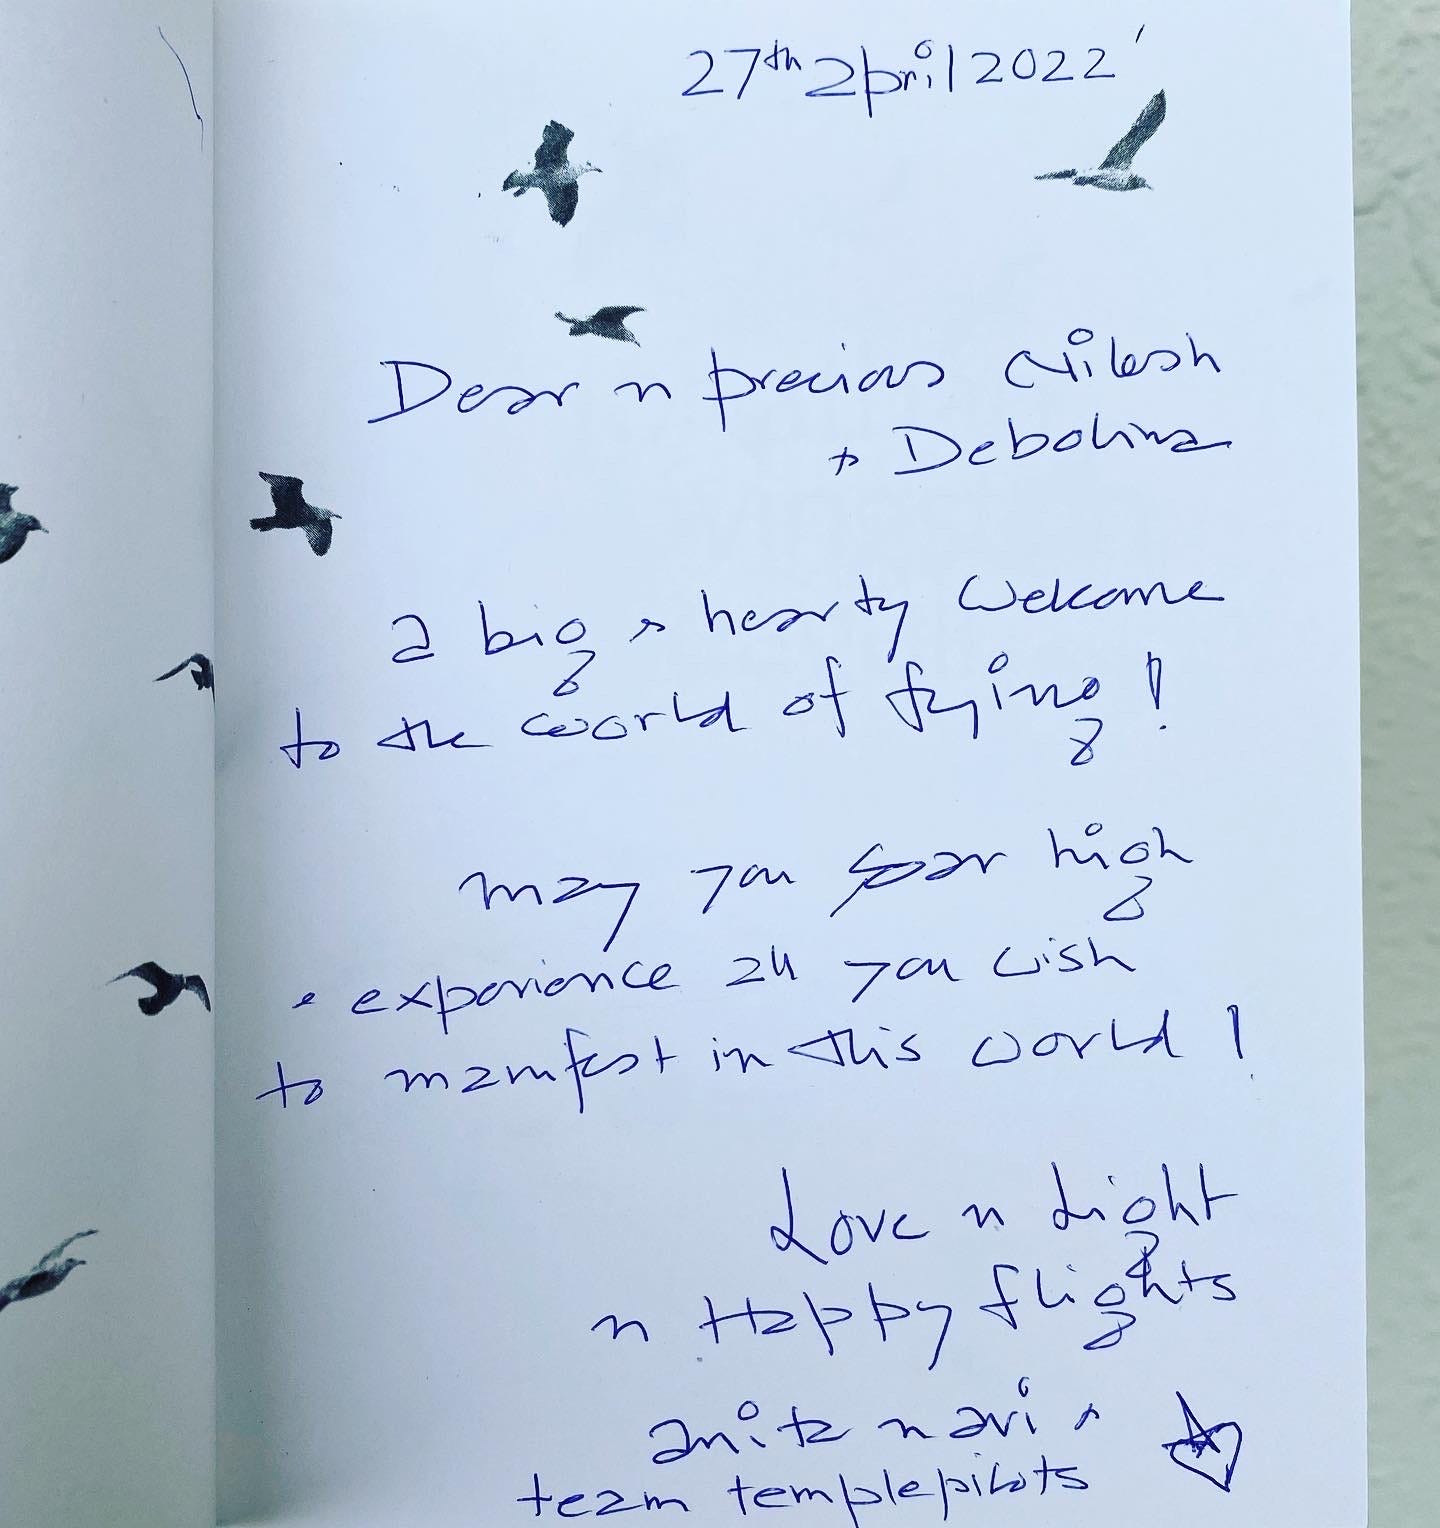 27th april 2022
Dear n precious Nilesh
+ Debolina
a big & hearty welcome
to the world of flying!
may you soar high
& experience all you wish
to manifest in this world!
Love n Light
n Happy flights
anita n avi &
team templepilots